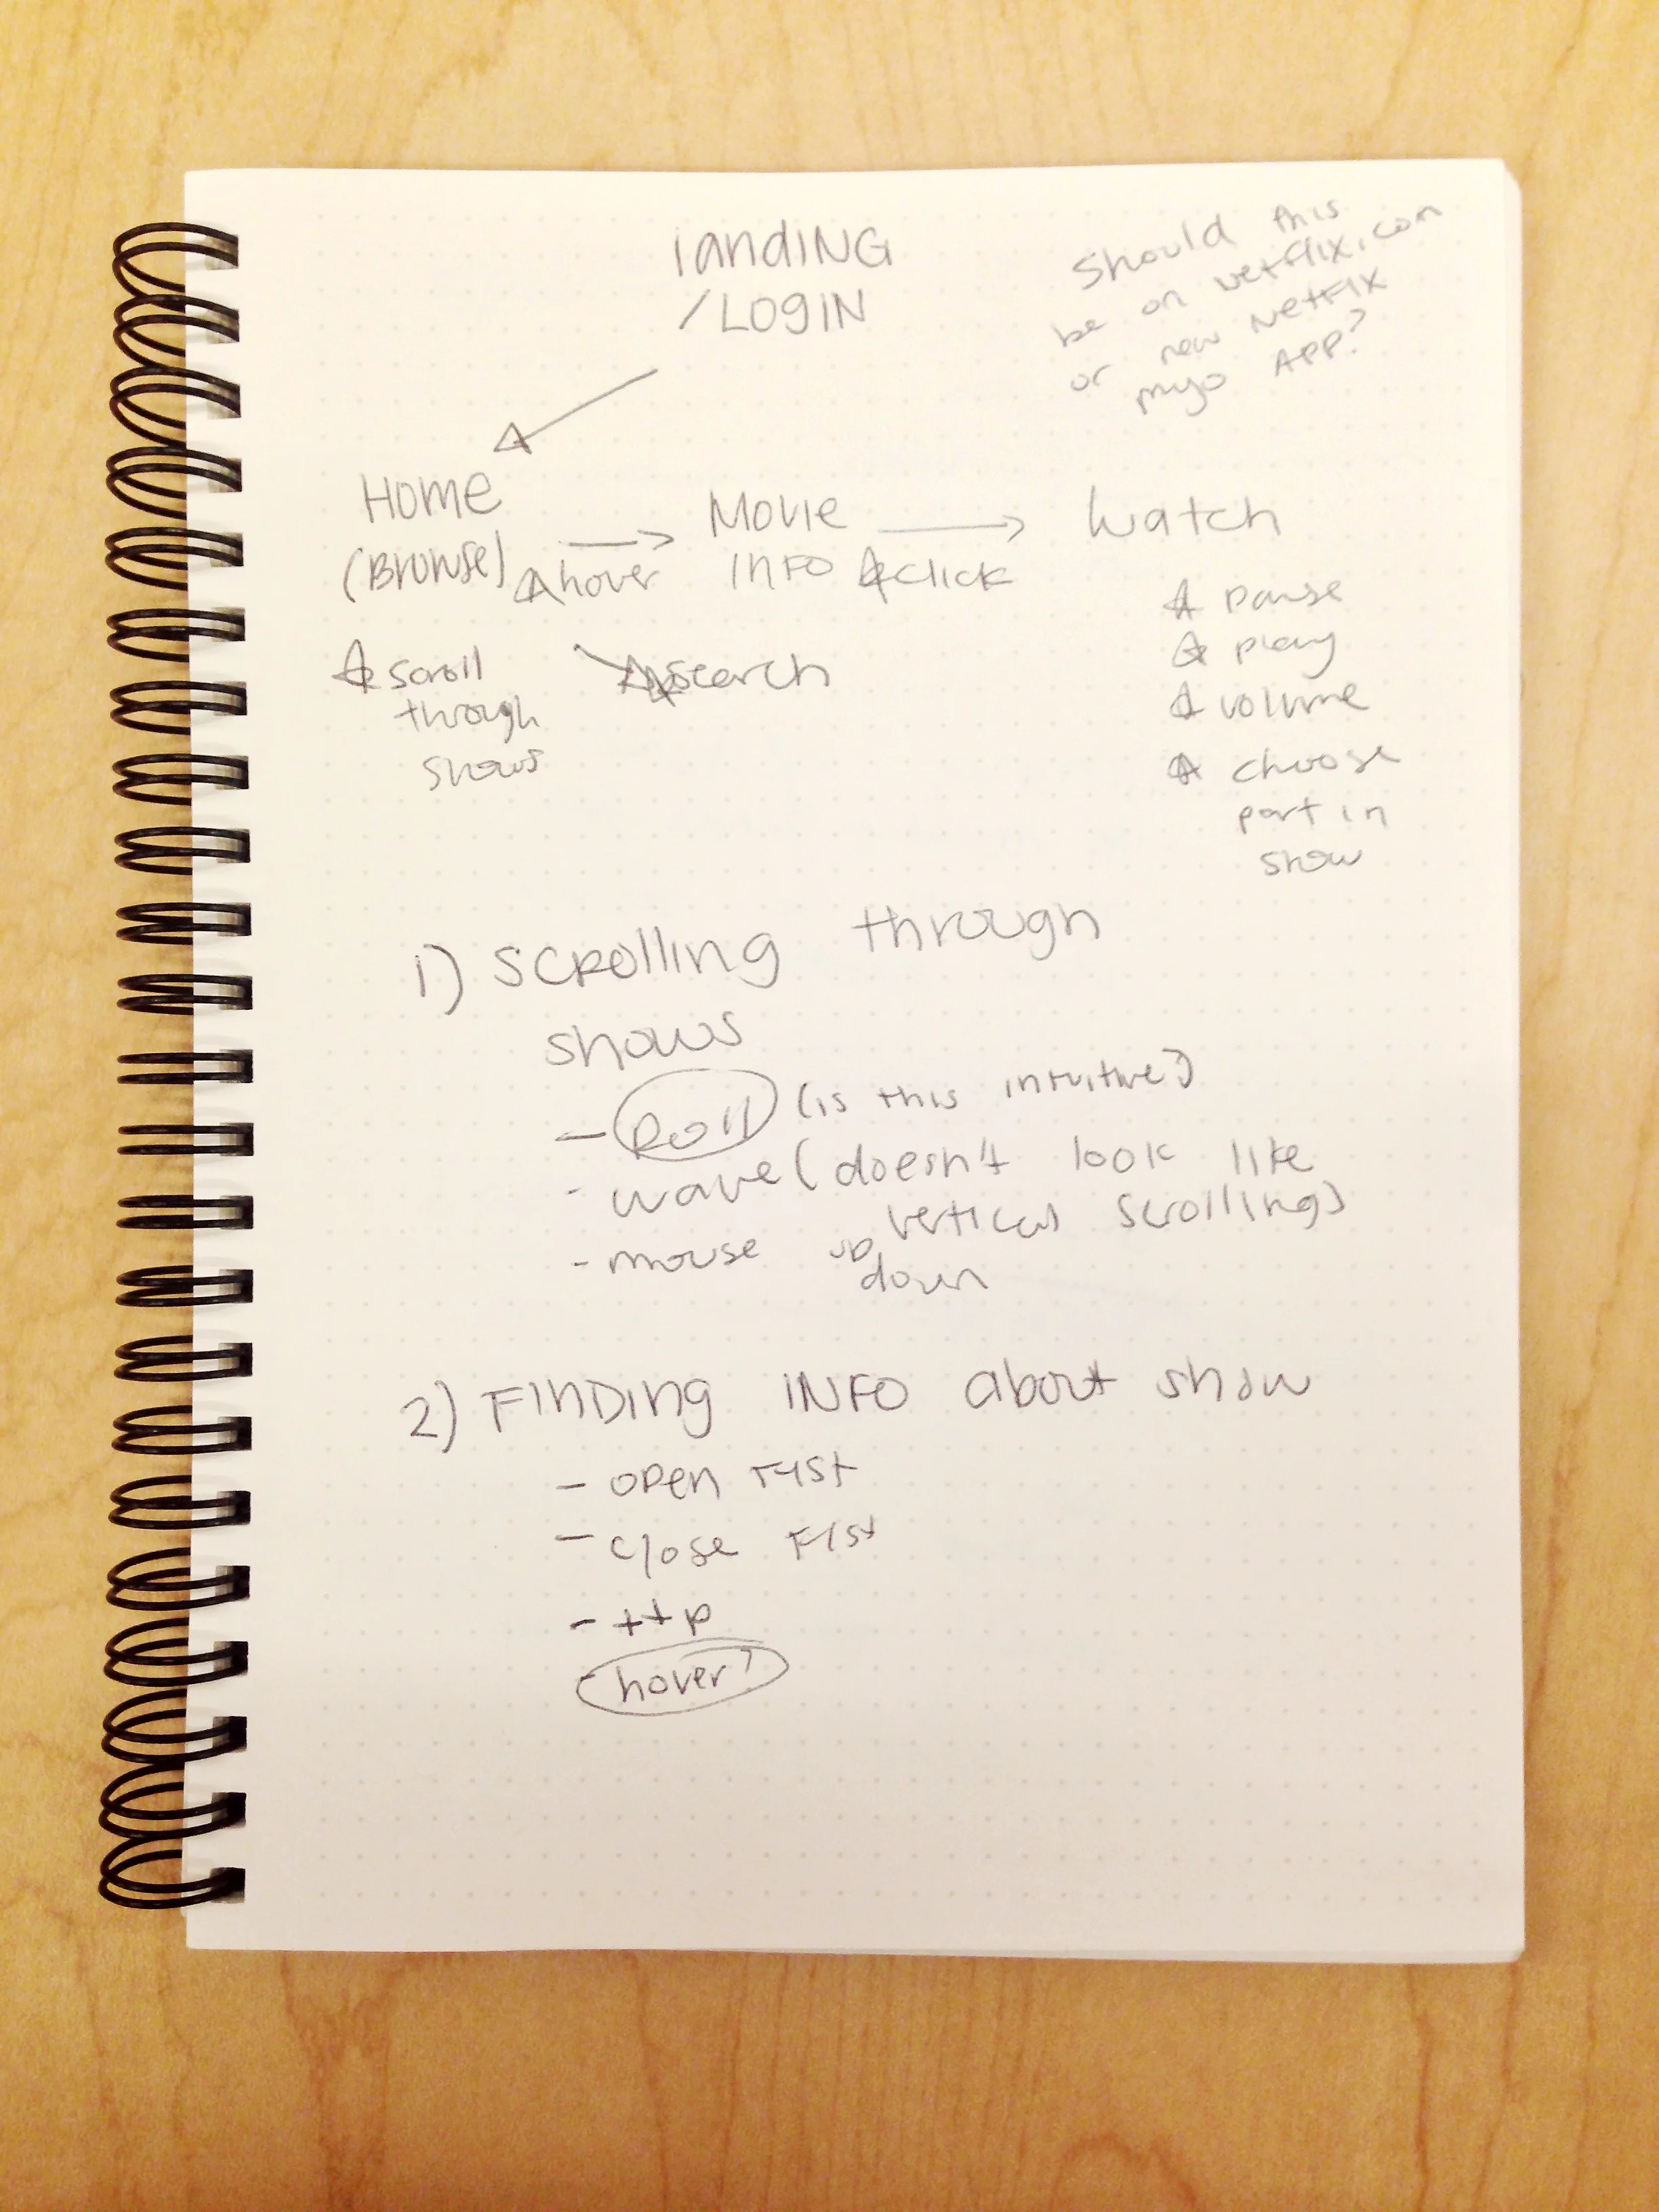 landING
/LOGIN
Should this
be on netflix.com
or new Netflix
myo APP?
Home
(Browse)
☆hover
Movie
INFO
☆click
Watch
☆ scroll
through
shows
☆search
☆ pause
☆ play
☆ volume
☆ choose
part in
show
1) scrolling through
shows
- Roll (is this intuitive?)
- wave (doesn't look like
vertical scrolling)
- mouse up
down
2) FINDIng INFO about show
- open fist
- close fist
- ttp
- hover?